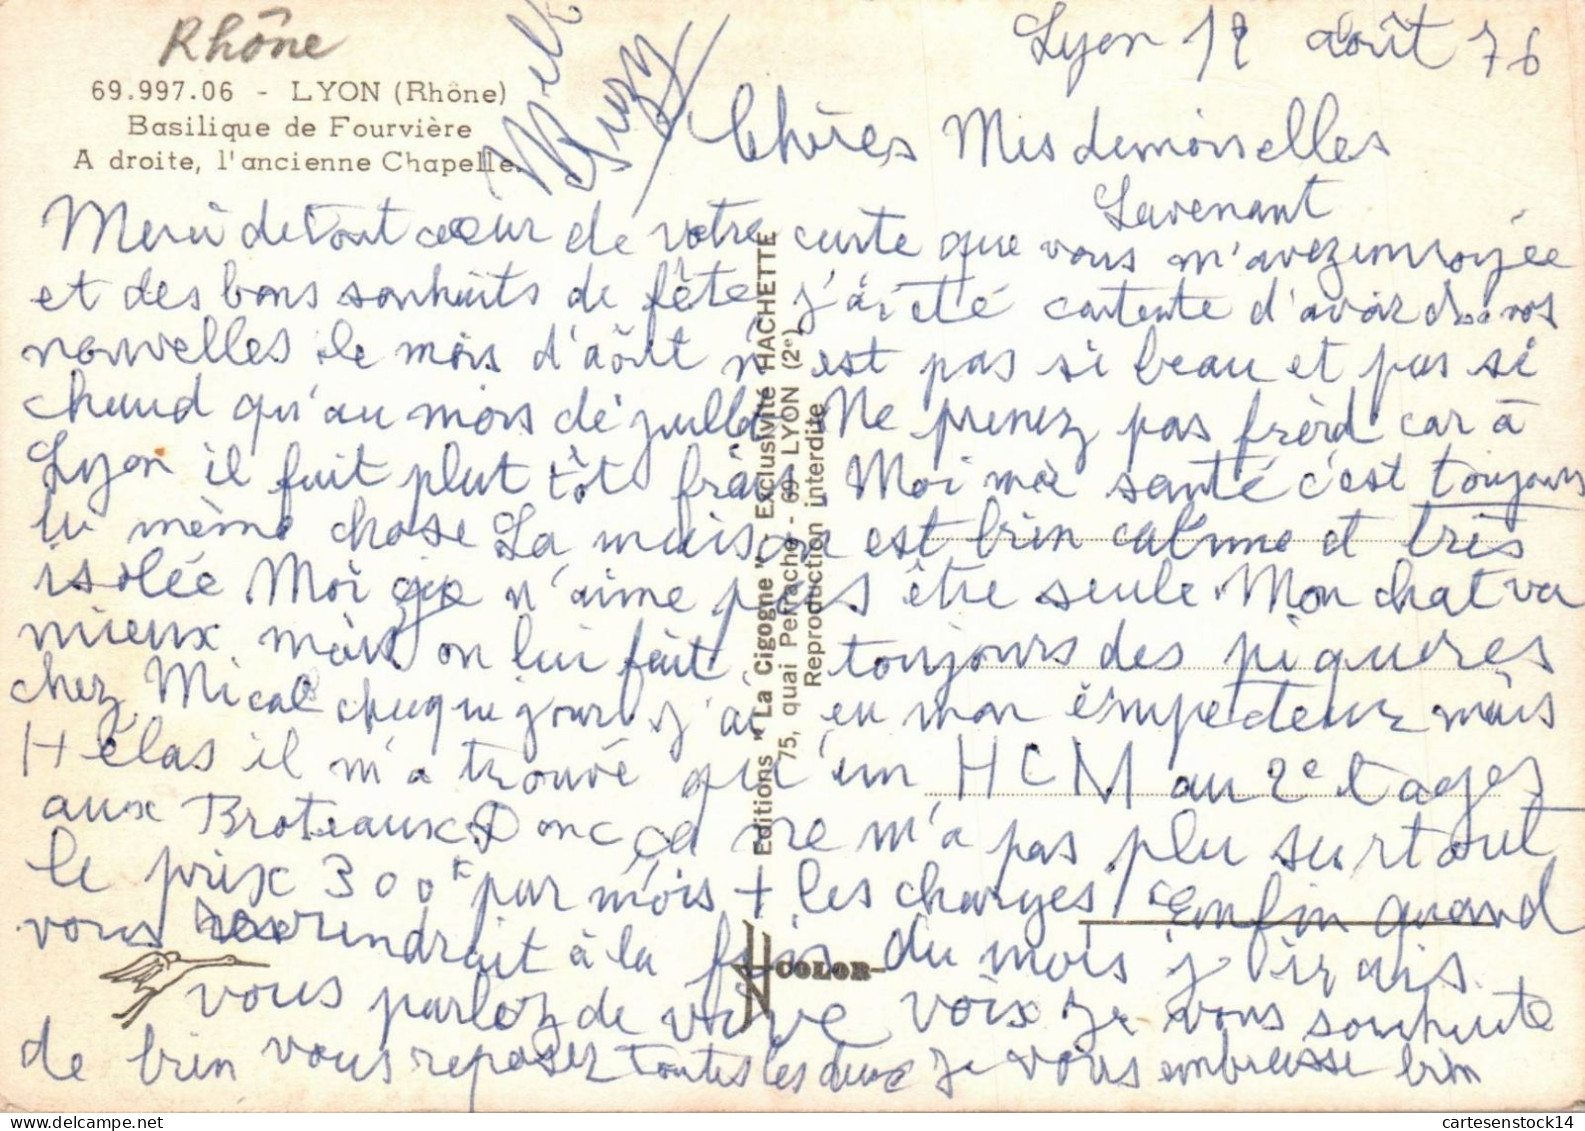 Rhône
69.997.06 - LYON (Rhône)
Basilique de Fourvière
A droite, l'ancienne Chapelle.
Suzy
Lyon 12 août 76
Chères Mesdemoiselles
Lavenant
Merci de tout coeur de votre carte que vous m'avez envoyée
et des bons souhaits de fête j'ai été contente d'avoir de vos
nouvelles le mois d'aôut n'est pas si beau et pas si
chaud qu'au mois de juillet Ne prenez pas frèrd car à
Lyon il fait plut tôt frais. Moi ma santé c'est toujours
la même chose La maison est bien calme et très
isolée Moi je n'aime pas être seule. Mon chat va
mieux mais on lui fait toujours des piqueres
chez Mical chaque jour j'ai eu mon empedeur mais
Hélas il m'a trouvé qu'un HCM au 2e étages
aux Broteaux Donc ça ne m'a pas plu surtout
le prix 300F par mois + les charges / Enfin quand
vous reviendrait à la fin du mois j'irais
vous parlez de vive voix je vous souhaite
de bien vous reposez toutes les deux je vous embrasse bien
Editions "La Cigogne" - Exclusivité HACHETTE
75, quai Perrache - 69 - LYON (2e)
Reproduction interdite
COLOR
cartesenstock14